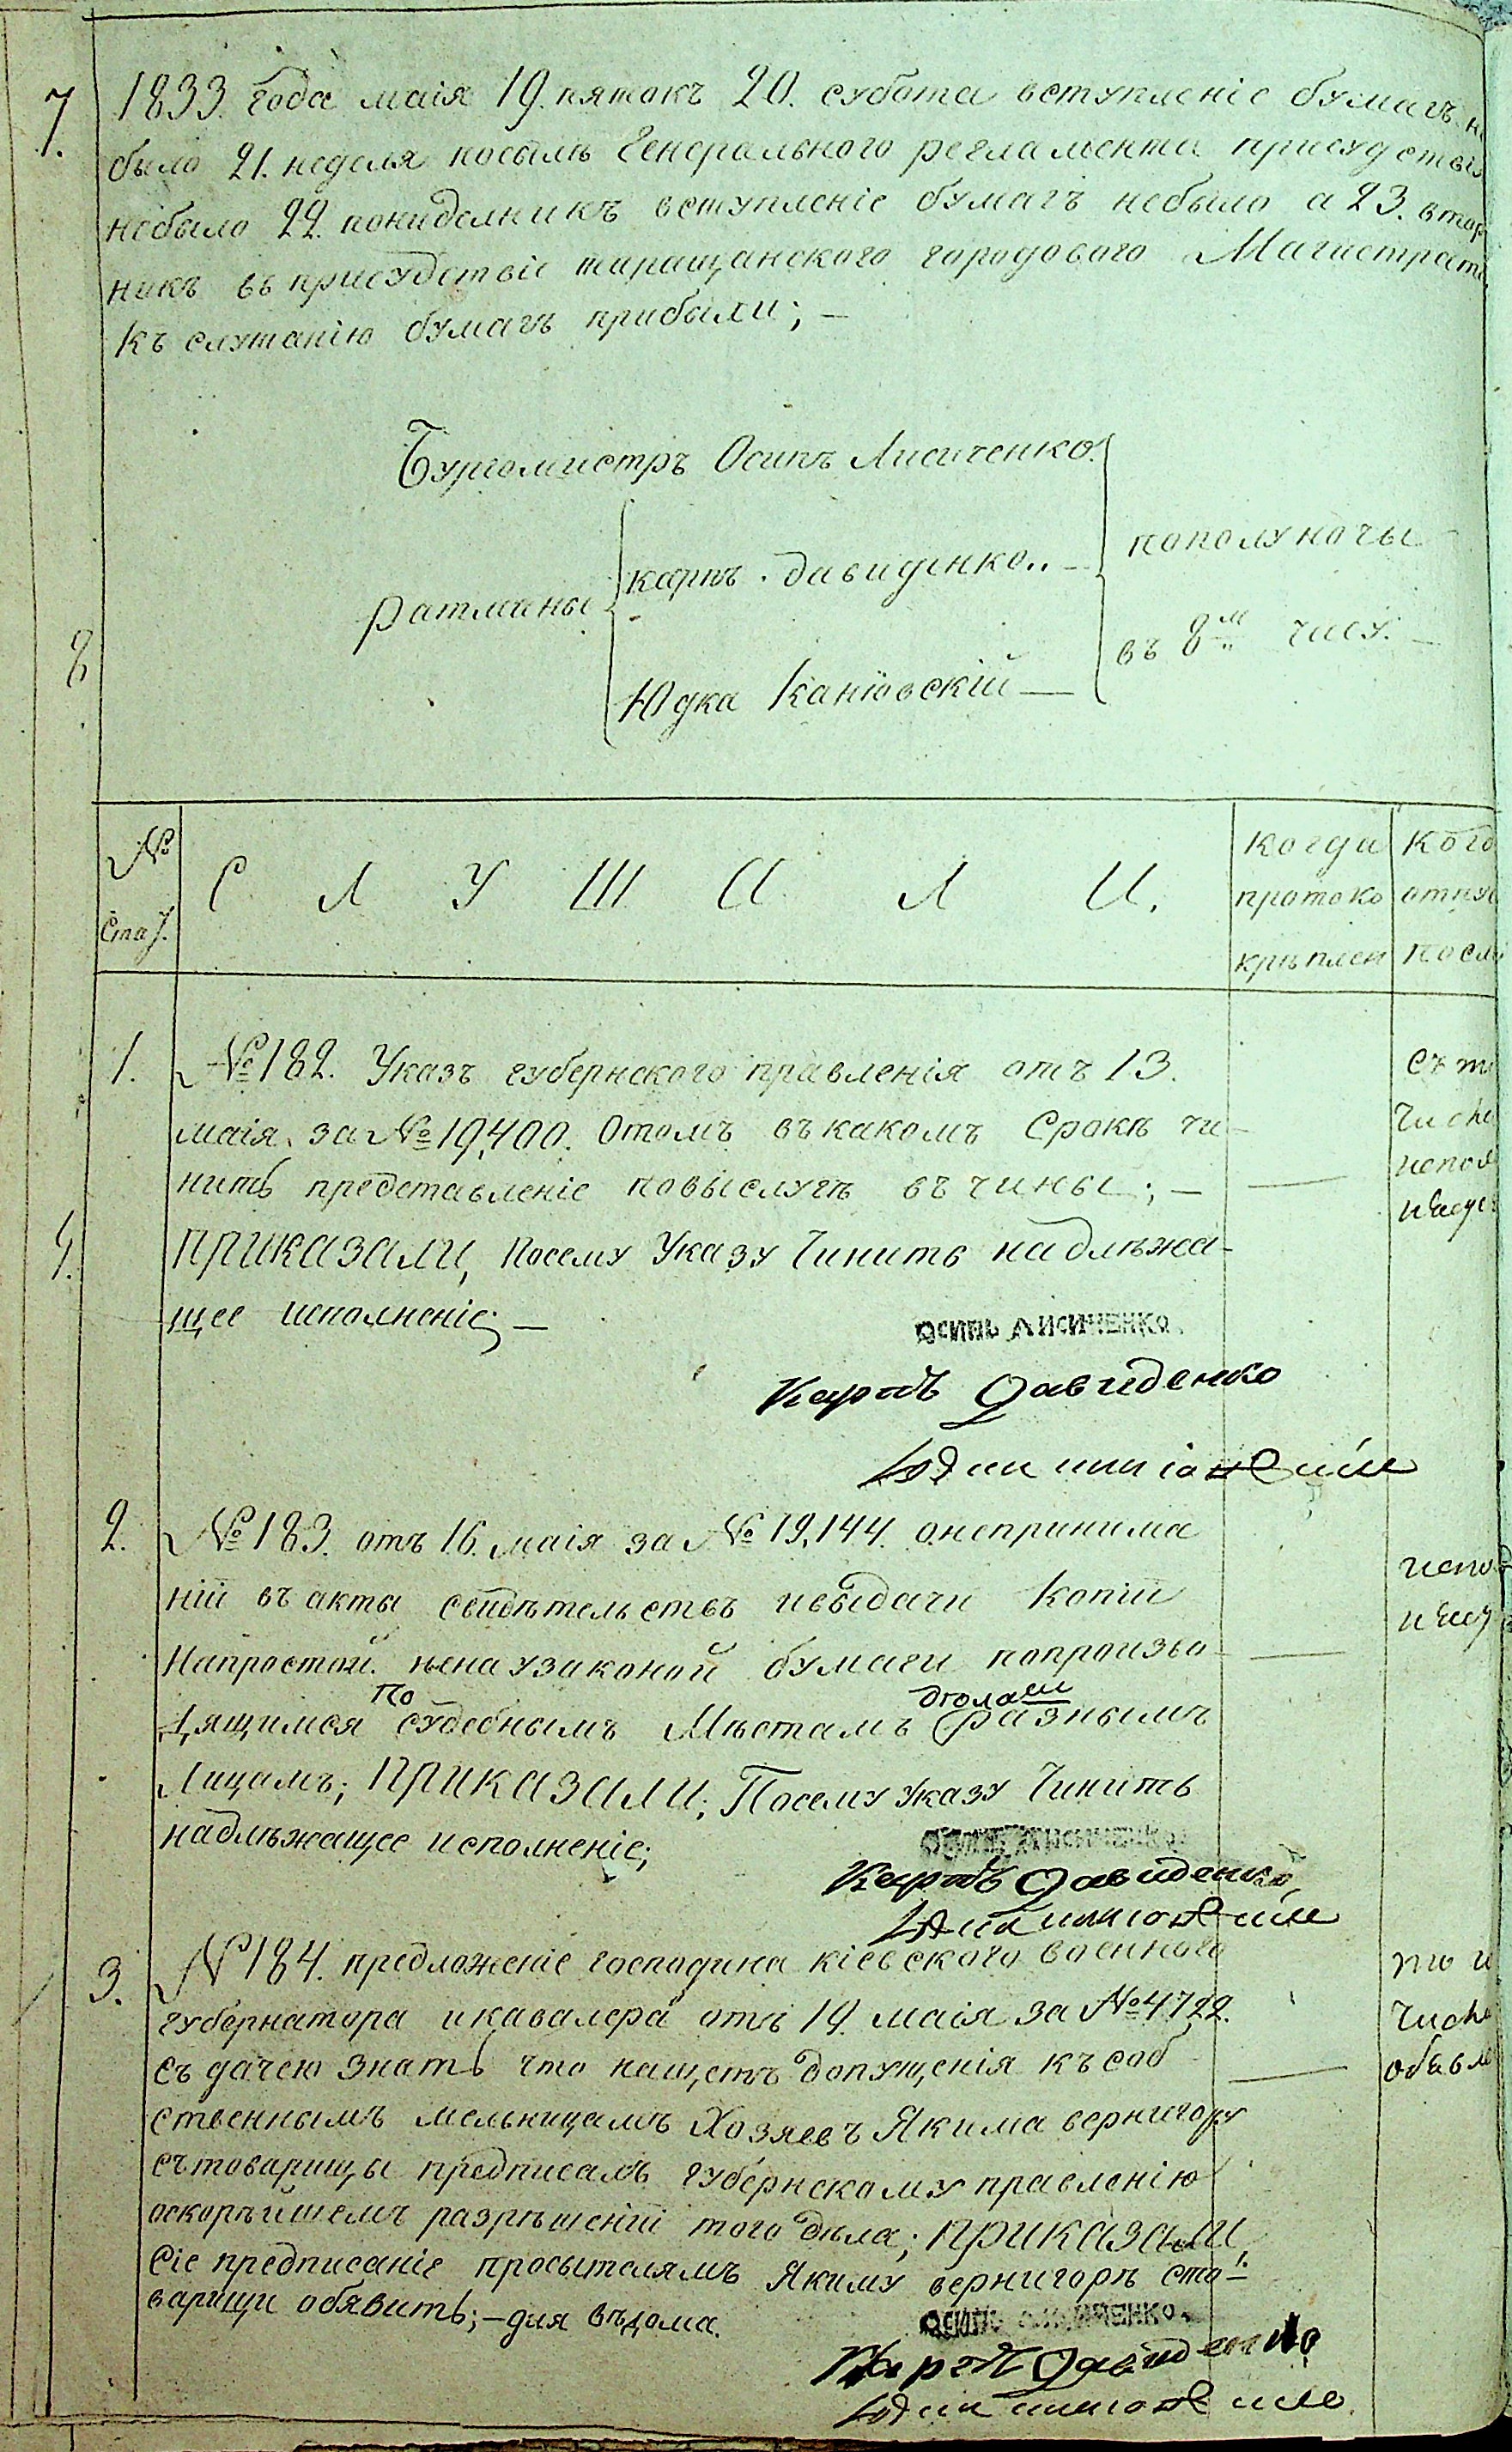 7. 1833. года маія 19. пятокъ 20. субота вступленіе бумагъ не
было 21. неделя посылѣ Генерального регламента присудствія
небыло 22. понидельникъ вступленіе бумагъ небыло а 23. втор
никъ въ присудствіе таращанского городового Магистрата
къ слушанію бумагъ прибыли; —
Бургомистръ Осипъ Лисиченко.
ратманы
карпъ. давиденко.. —
Юдка Каніовскій —
пополуночы
въ 8м часу. —
8
№
Ста7.
С Л У Ш А Л И.
когда
протоко
крѣплен
Кого
отпус
посл
1. №182. Указъ губернского правленія отъ 13.
маія за №19,400. Отомъ въкакомъ Срокѣ чи-
нить представленіе повыслугѣ въ чины; —
ПРИКАЗАЛИ, Посему Указу Чинить надлѣжа-
щее исполненіе; —
Съ т
Числ
испол
9.
ОСИПЬ ЛИСИЧЕНКО.
Карпъ Давиденко
2. №183. отъ 16. маія за №19,144. онепринима
ній въ акты свидѣтельствъ ивыдачи Копій
Напростой. ненаузаконой бумаги попроизво
дящимся по судебнымъ Мѣстамъ дѣламъ разнымъ
Лицамъ; ПРИКАЗАЛИ; Посему Указу Чинить
надлѣжащее исполненіе;
испол
ОСИПЬ ЛИСИЧЕНКО.
Карпъ Давиденко
3. №184. предложеніе господина кіевского военного
губернатора икавалера отъ 19. маія за №4722.
съ дачею знать что нащетъ допущенія къ соб
ственнымъ мельницамъ Хозяевъ Якима вернигору
стоварищы предписалъ губернскому правленію
оскорѣйшемъ разрѣшеній того дѣла; ПРИКАЗАЛИ
Сіе предписаніе просытелямъ Якиму вернигорѣ сто-
варищи обявить; — для вѣдома.
то и
Числ
обявл
ОСИПЬ ЛИСИЧЕНКО.
Карпъ Давиденко